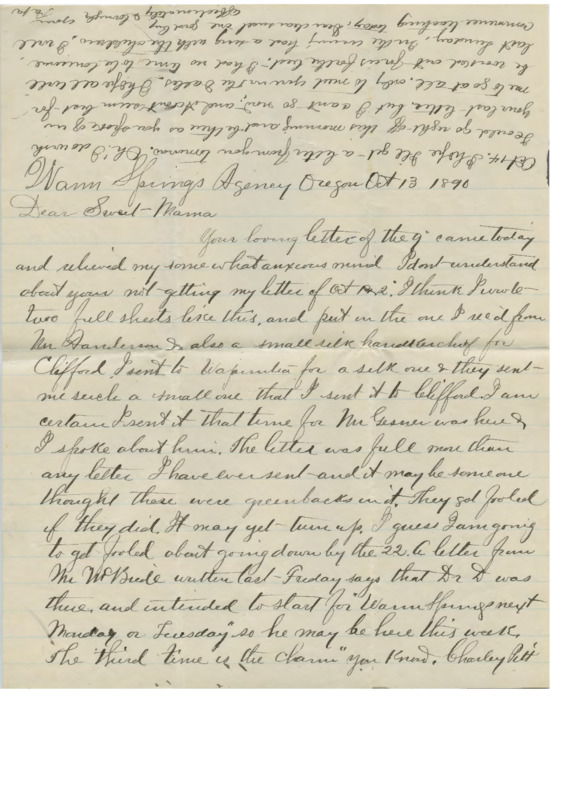 Warm Springs Agency Oregon Oct 13 1890
Dear Sweet Mama
Your loving letter of the 9" came today
and relieved my somewhat anxious mind I dont understand
about your not getting my letter of Oct 2". I think I wrote
two full sheets like this, and put in the one I rec'd from
& also a small silk handkerchief for
Clifford. I sent to Wapinitia for a silk one & they sent
me such a small one that I sent it to Clifford. I am
certain I sent it that time for Mr Gesner was here &
I spoke about him. The letter was full more than
any letter I have ever sent and it may be some one
thought there were greenbacks in it. They got fooled
if they did. It may yet turn up. I guess I am going
to get fooled about going down by the 22. A letter from
Mr McBride written last Friday says that Dr D was
there, and intended to start for Warm Springs next
Monday or Tuesday" so he may be here this week.
The "third time is the charm" you know. Charley Pitt
Oct 14. I hope Ill get a letter from you tomorrow. Oh! I do wish
I could go right off this morning and be there as you spoke of in
your last letter but I cant go now, and it dont seem best for
me to go at all, only to meet you in the Dalles. I hope all will
be worked out for best. I had no time to be lonesome
last Sunday. In the evening had a sing with the children. I will
commence teaching today. Dear
affectionately & lovingly yours
Papa